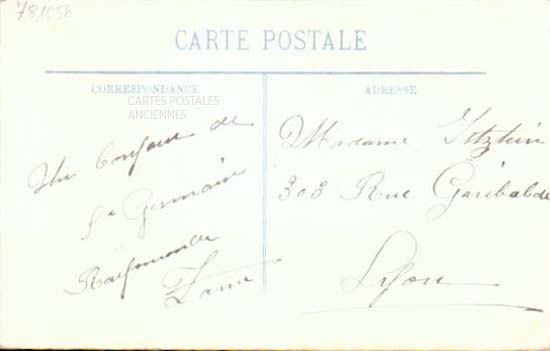 CARTE POSTALE
CORRESPONDANCE
CARTES POSTALES
ANCIENNES
Un bonjour de
St Germain
ADRESSE
Madame
303 Rue Garibaldi
Lyon